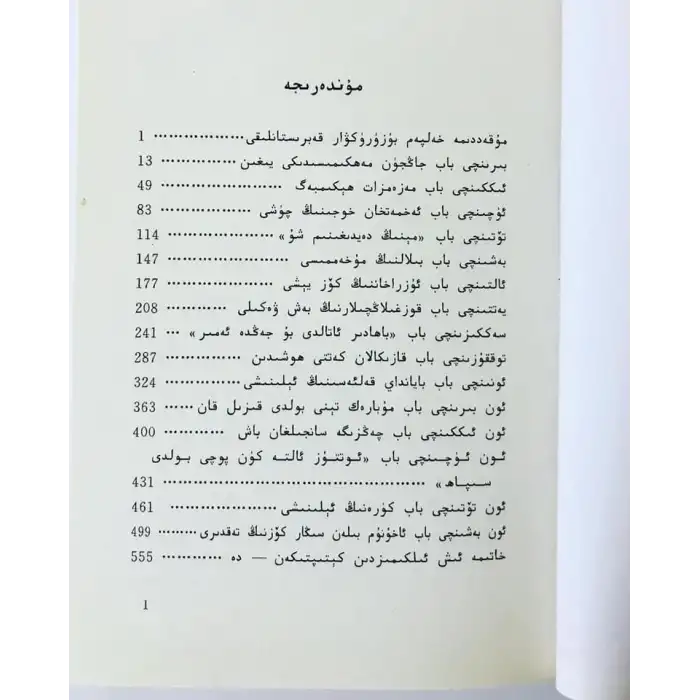 مۇندەرىجە
مۇقەددىمە خەلپەم بۇزۇرۇكۋار قەبرىستانلىقى ……………… 1
بىرىنچى باب جاڭجۈن مەھكىمىسىدىكى يىغىن …………… 13
ئىككىنچى باب مەزەمزات ھېكىمبەگ …………………… 49
ئۈچىنچى باب ئەخمەتخان خوجىنىڭ چۈشى ……………… 83
تۆتىنچى باب «مېنىڭ دەيدىغىنىم شۇ» ………………… 114
بەشىنچى باب بىلالنىڭ مۇخەممىسى …………………… 147
ئالتىنچى باب ئۇزراخاننىڭ كۆز يېشى ………………… 177
يەتتىنچى باب قوزغىلاڭچىلارنىڭ بەش ۋەكىلى ………… 208
سەككىزىنچى باب «باھادىر ئاتالدى بۇ جەڭدە ئەمىر» … 241
توققۇزىنچى باب قازىكالان كەتتى ھوشىدىن …………… 287
ئونىنچى باب بايانداي قەلئەسىنىڭ ئېلىنىشى …………… 324
ئون بىرىنچى باب مۇبارەك تېنى بولدى قىزىل قان …… 363
ئون ئىككىنچى باب چەڭزىگە سانجىلغان باش ………… 400
ئون ئۈچىنچى باب «ئوتتۇز ئالتە كۈن پوچى بولدى
سىپاھ» ………………………………………… 431
ئون تۆتىنچى باب كۈرەنىڭ ئېلىنىشى …………………… 461
ئون بەشىنچى باب ئاخۇنۇم بىلەن سىڭار كۆزنىڭ تەقدىرى ……… 499
خاتىمە ئىش ئىلكىمىزدىن كېتىپتىكەن — دە ………… 555
1